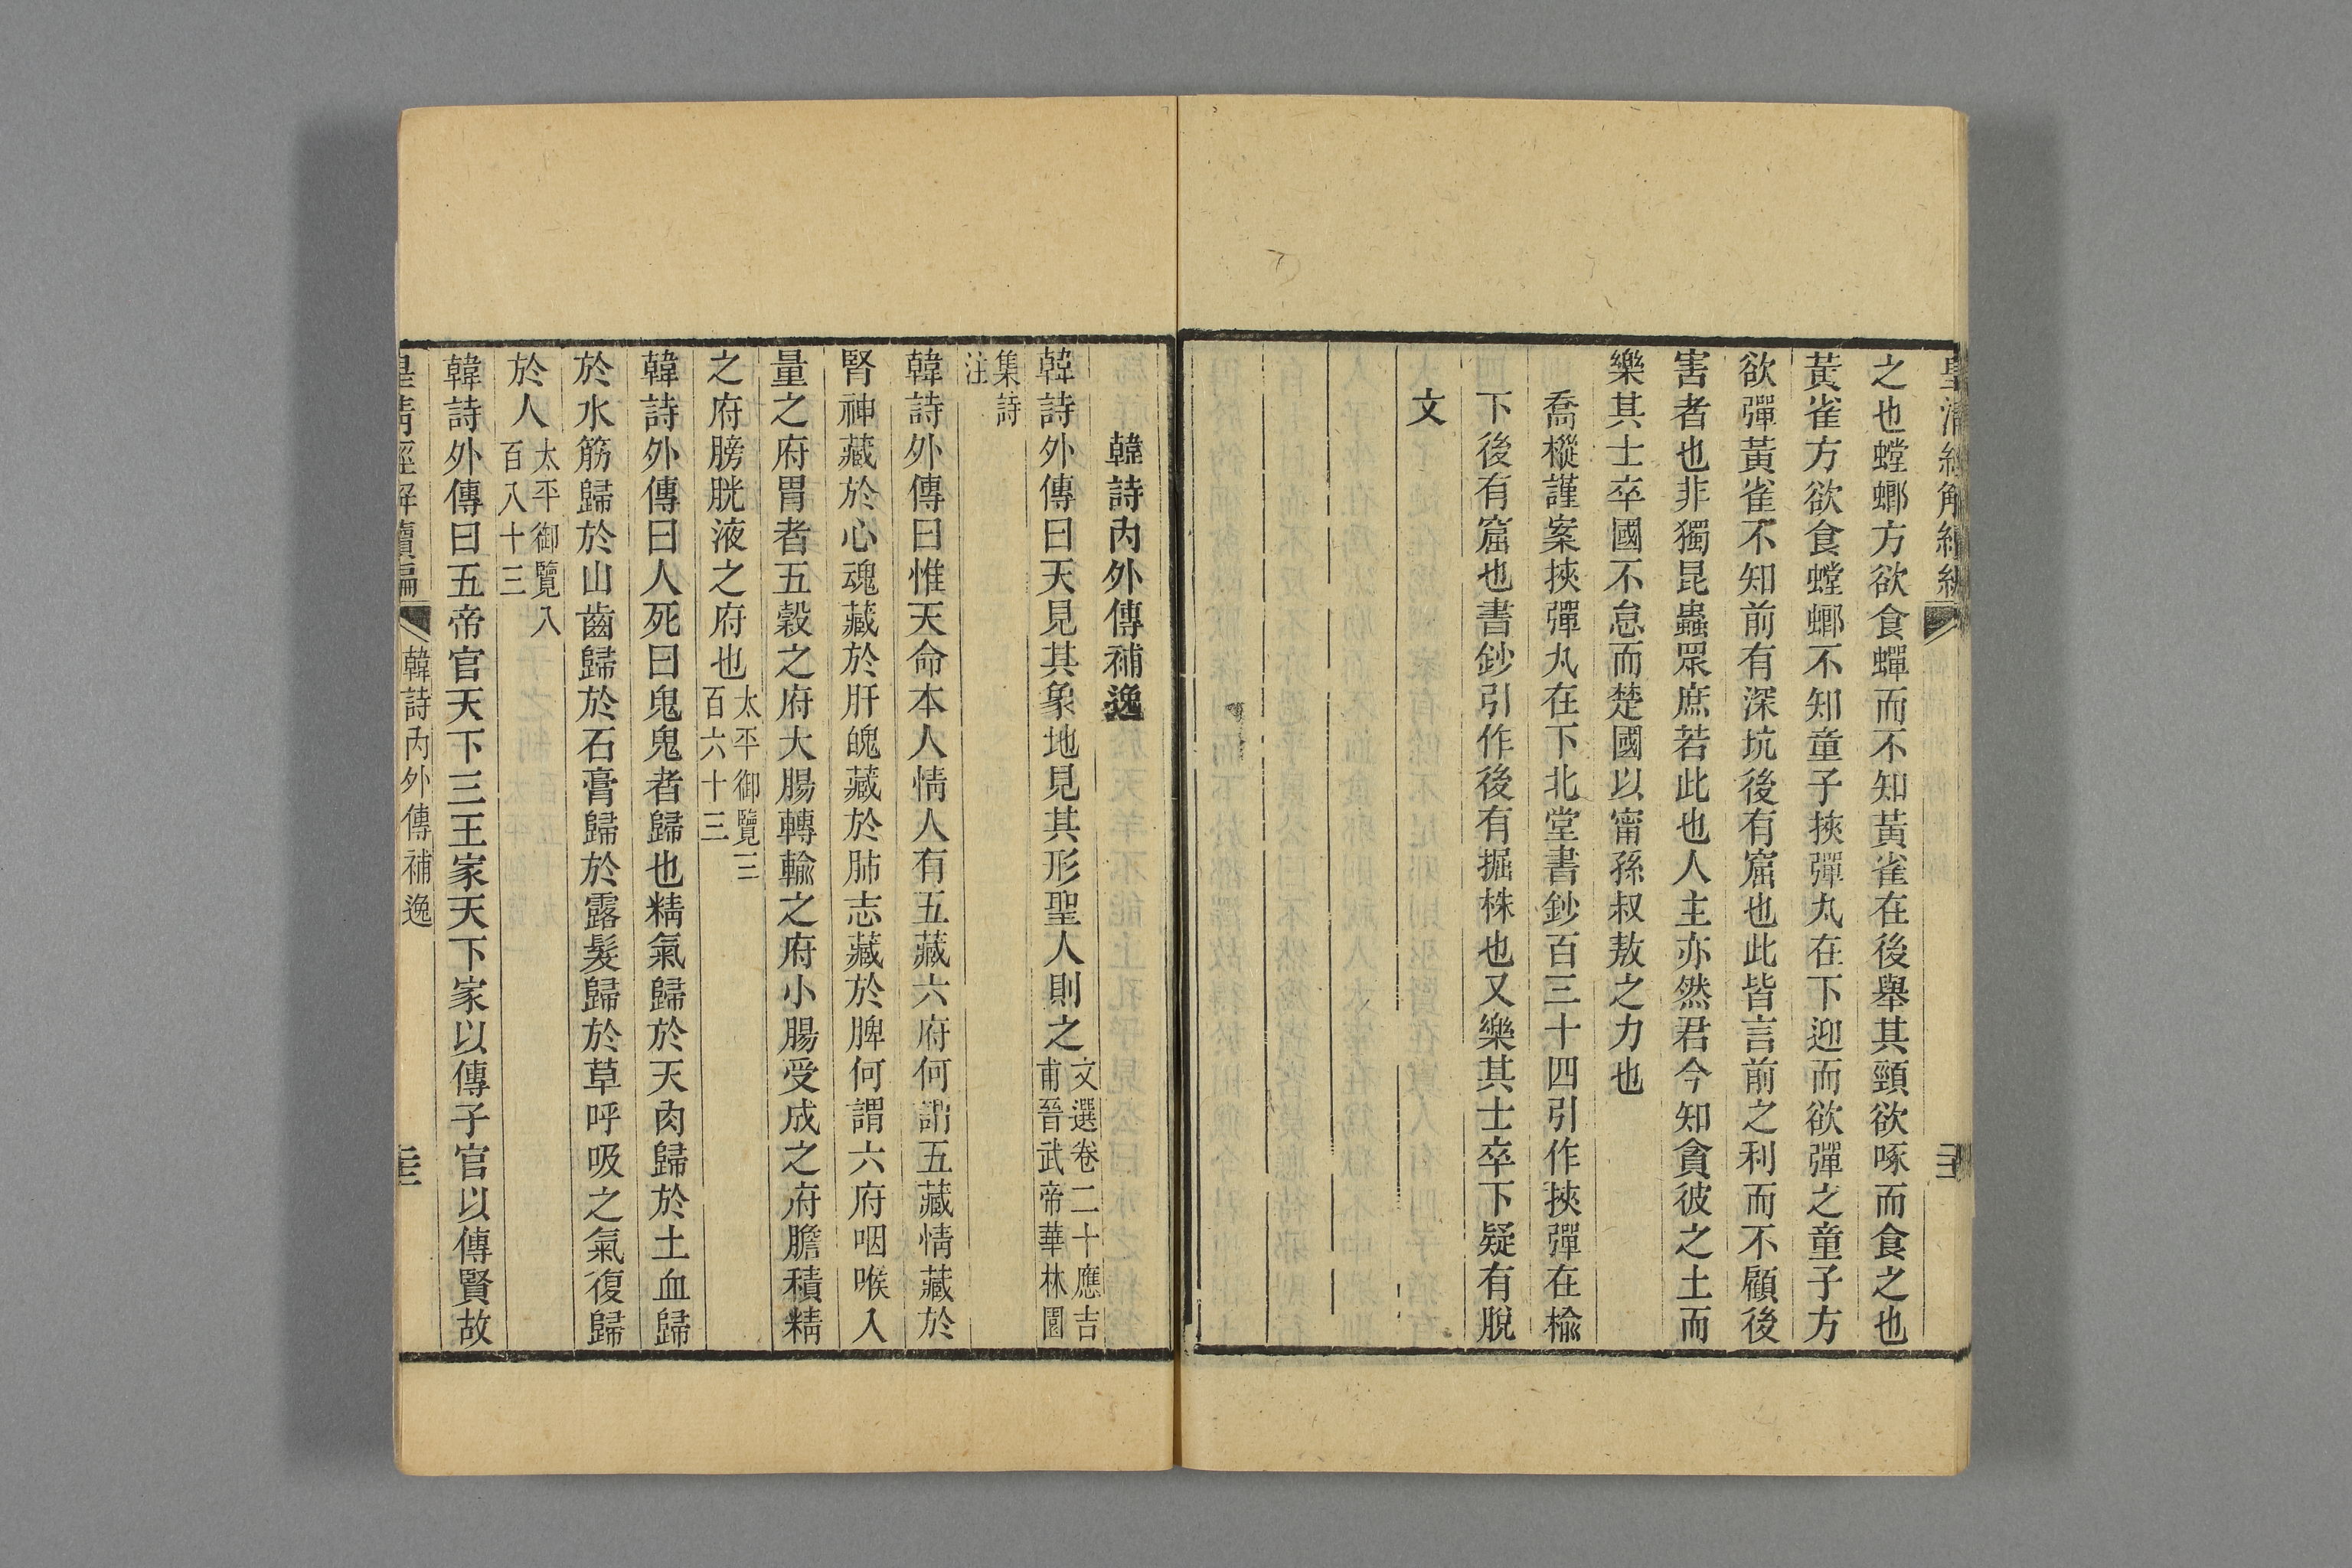 之也螳螂方欲食蟬而不知黃雀在後舉其頸欲啄而食之也
黃雀方欲食螳螂不知童子挾彈丸在下迎而欲彈之童子方
欲彈黃雀不知前有深坑後有窟也此皆言前之利而不顧後
害者也非獨昆蟲眾庶若此也人主亦然君今知貪彼之土而
樂其士卒國不怠而楚國以甯孫叔敖之力也
喬樅謹案挾彈丸在下北堂書鈔百三十四引作挾彈在榆
下後有窟也書鈔引作後有掘株也又樂其士卒下疑有脫
文
韓詩內外傳補逸
韓詩外傳曰天見其象地見其形聖人則之文選卷二十應吉
甫晉武帝華林園
集詩
注
韓詩外傳曰惟天命本人情人有五藏六府何謂五藏情藏於
腎神藏於心魂藏於肝魄藏於肺志藏於脾何謂六府咽喉入
量之府胃者五穀之府大腸轉輸之府小腸受成之府膽積精
之府膀胱液之府也太平御覽三
百六十三
韓詩外傳曰人死曰鬼鬼者歸也精氣歸於天肉歸於土血歸
於水筋歸於山齒歸於石膏歸於露髮歸於草呼吸之氣復歸
於人太平御覽八
百八十三
韓詩外傳曰五帝官天下三王家天下家以傳子官以傳賢故
皇清經解續編
韓詩內外傳補逸